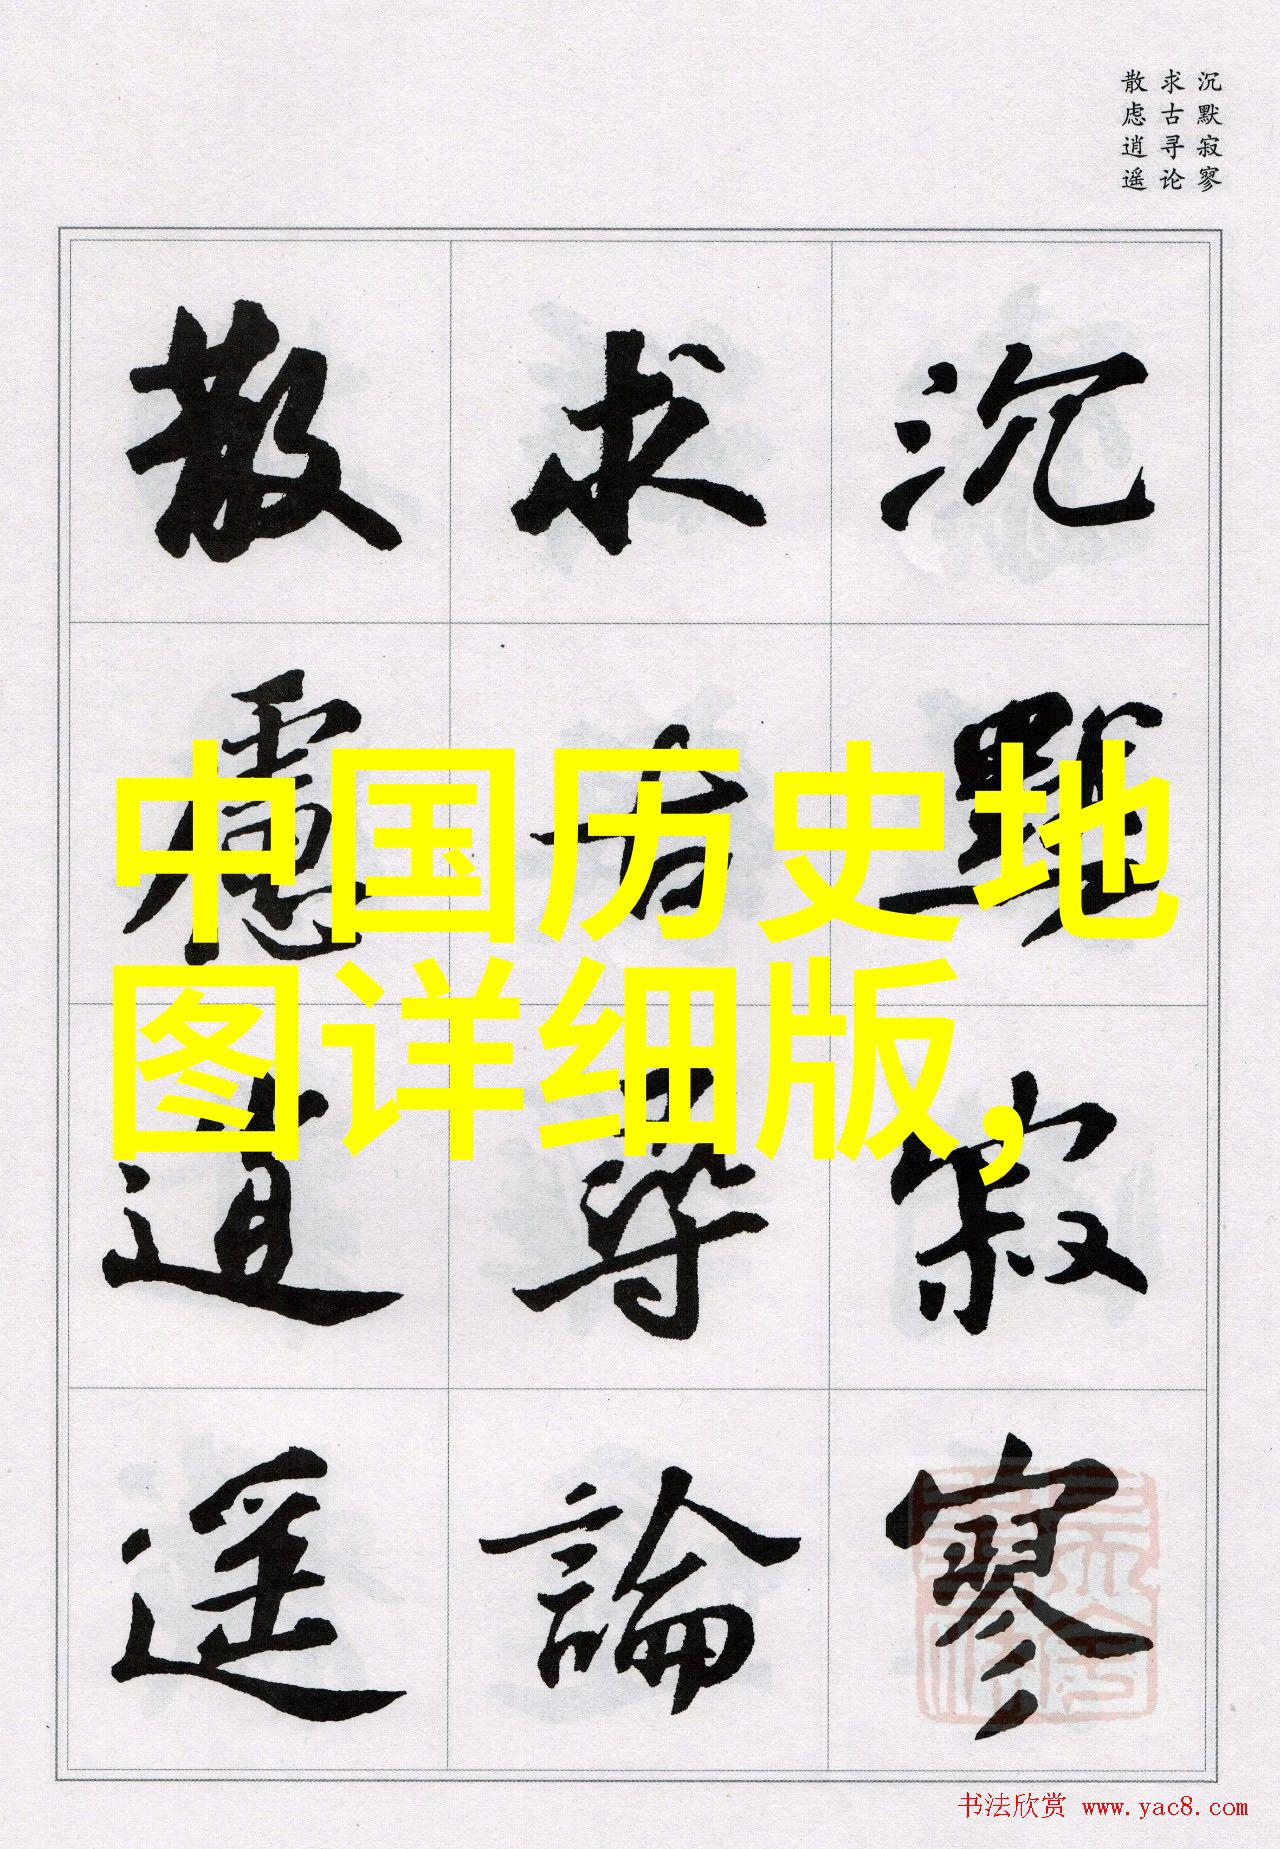 沉默寂寥
求古寻论
散虑逍遥
沉默寂寥
求古尋論
散慮逍遥
中国历史地
图详细版,
书法欣赏 www.yac8.com